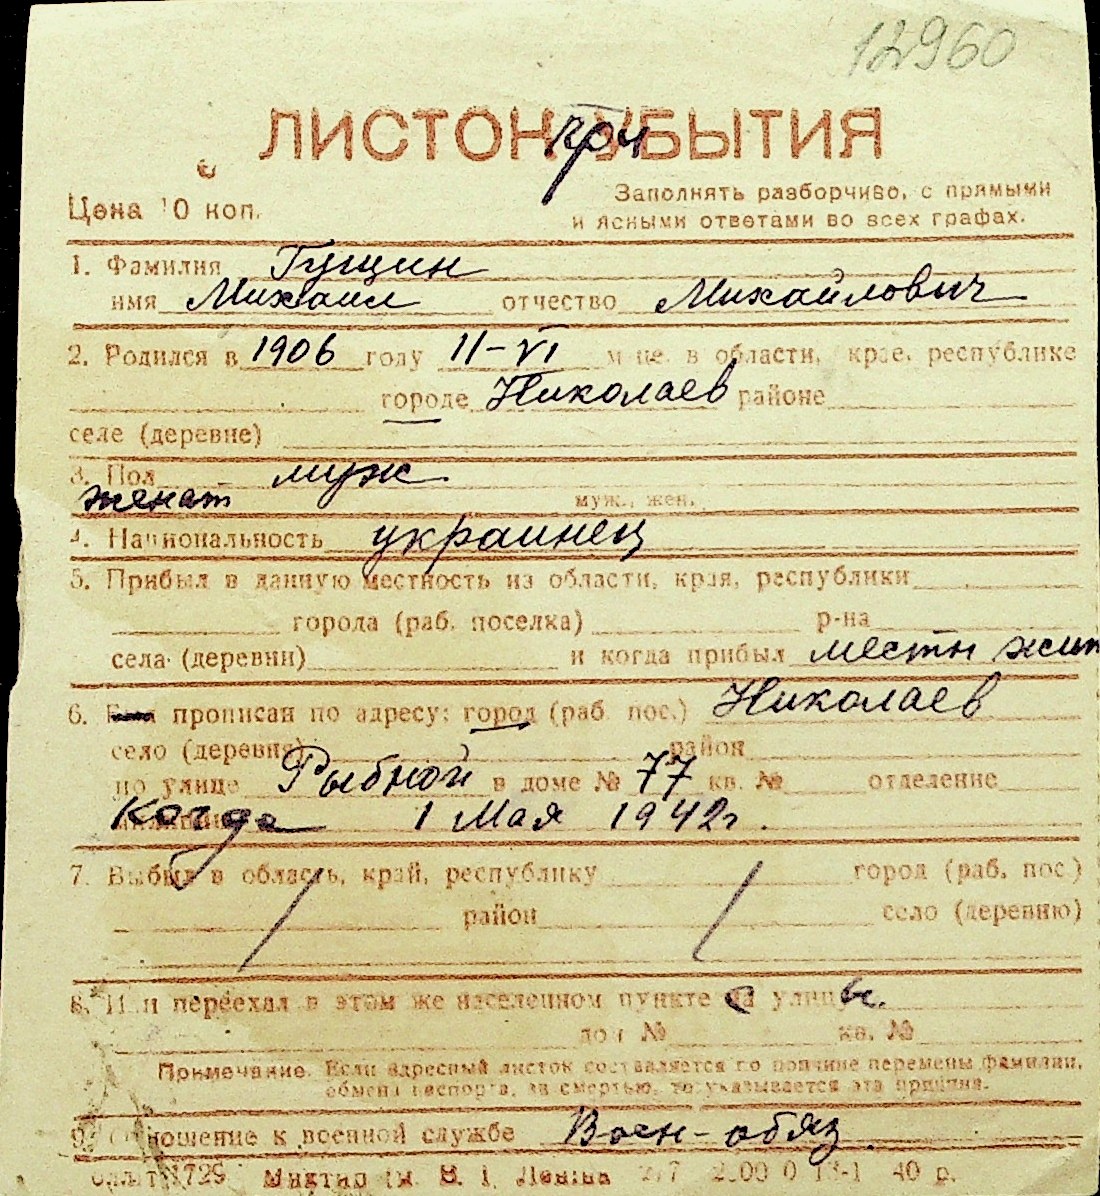 12960
ЛИСТОК при УБЫТИЯ
Цена 10 коп.
Заполнять разборчиво, с прямыми
и ясными ответами во всех графах.
1. Фамилия Гущин
имя Михаил отчество Михайлович
2. Родился в 1906 году 11-VI м-це, в области, крае, республике
городе Николаев районе
селе (деревне)
3. Пол муж
женат муж., жен.
4. Национальность украинец
5. Прибыл в данную местность из области, края, республики
города (раб. поселка) р-на
села (деревни) и когда прибыл местн жит
6. прописан по адресу: город (раб. пос.) Николаев
село (деревня) район
по улице Рыбной в доме № 77 кв. № отделение
когда 1 Мая 1942г.
7. Выбыл в область, край, республику город (раб. пос.)
район село (деревню)
8. Или переехал в этом же населенном пункте с улицы.
дом № кв. №
Примечание. Если адресный листок составляется по причине перемены фамилии,
обмена паспорта, за смертью, то указывается эта причина.
9. Отношение к военной службе Воен-обяз.
1729 40 р.